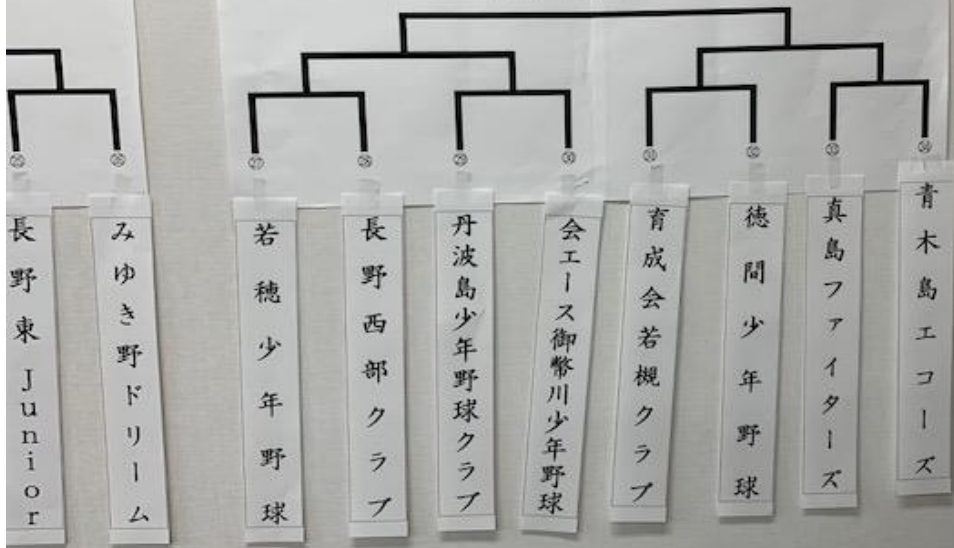 ㉕ ㉖ ㉗ ㉘ ㉙ ㉚ ㉛ ㉜ ㉝ ㉞
長野東Junior
みゆき野ドリーム
若穂少年野球
長野西部クラブ
丹波島少年野球クラブ
会エース御幣川少年野球
育成会若槻クラブ
徳間少年野球
真島ファイターズ
青木島エコーズ